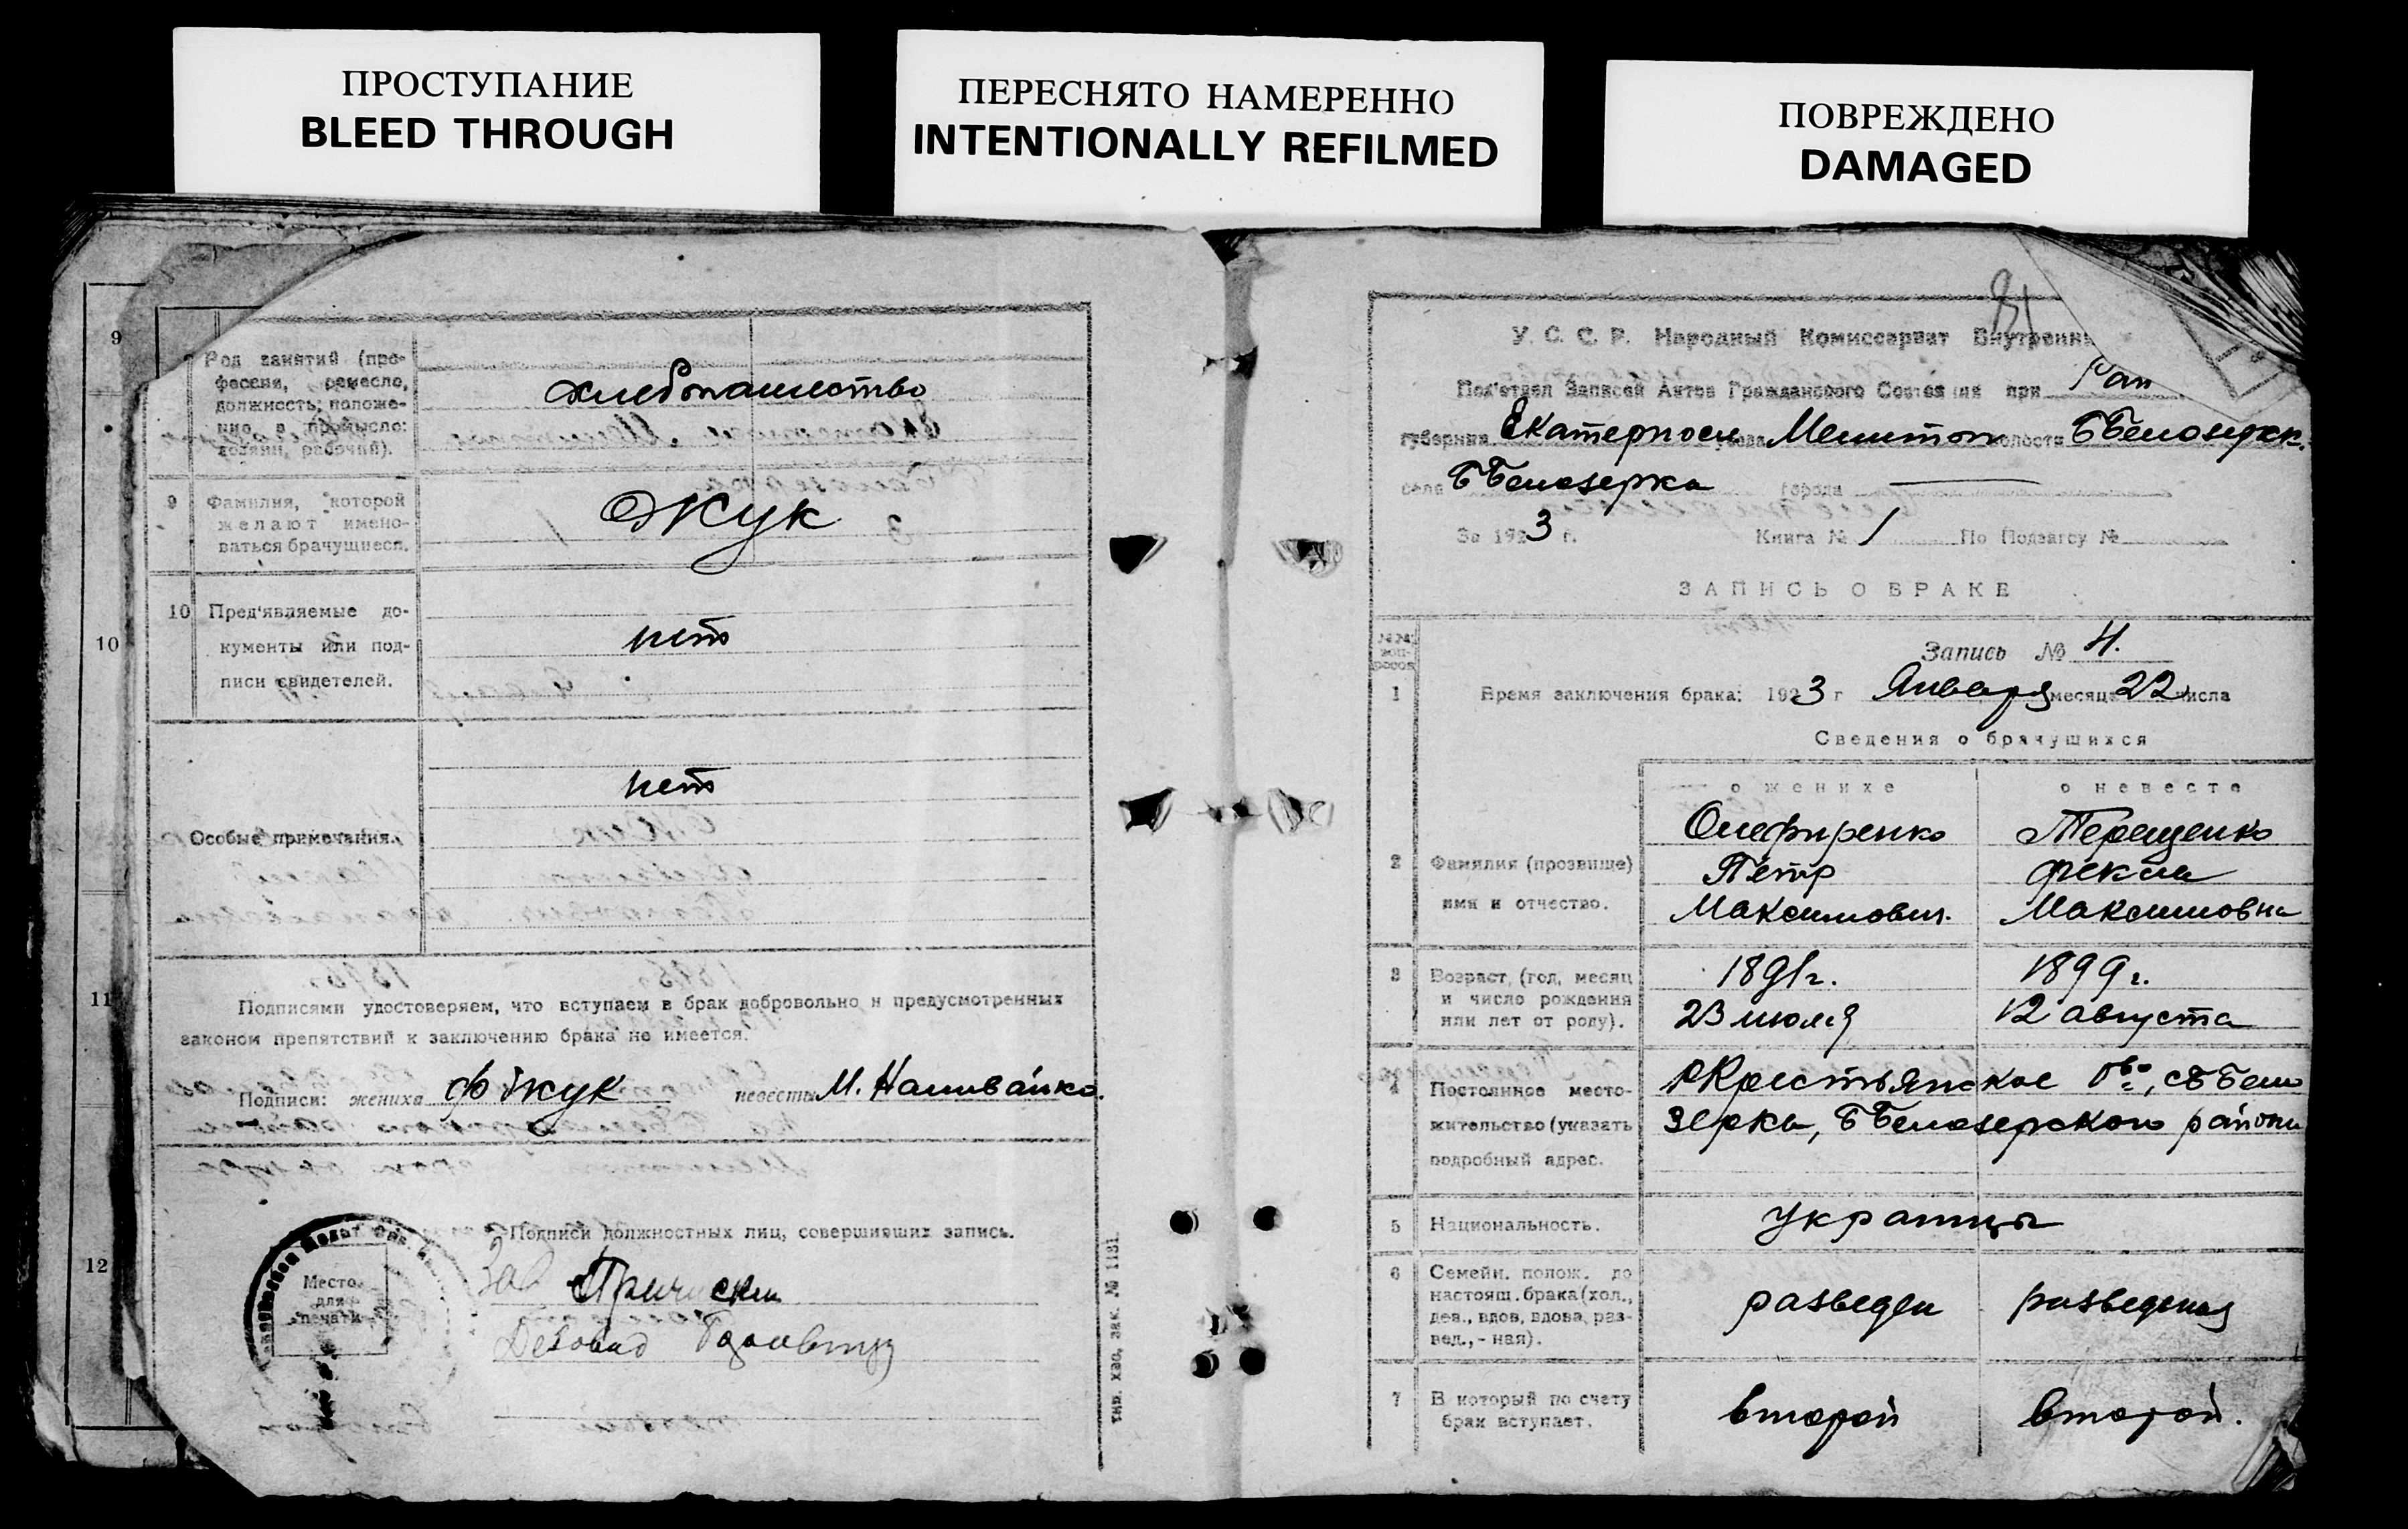 ПРОСТУПАНИЕ
BLEED THROUGH
ПЕРЕСНЯТО НАМЕРЕННО
INTENTIONALLY REFILMED
ПОВРЕЖДЕНО
DAMAGED
9
10
11
12
Род занятий (про-
фессия, ремесло,
должность; положе-
ние в промысле:
хозяин, рабочий).
хлебопашество
9 Фамилия, которой
желают имено-
ваться брачущиеся.
Жук
10 Пред'являемые до-
кументы или под-
писи свидетелей.
нет
Особые примечания.
нет
Подписями удостоверяем, что вступаем в брак добровольно и предусмотренных
законом препятствий к заключению брака не имеется.
Подписи: жениха Ф Жук невесты М. Наливайко.
Подписи должностных лиц, совершивших запись.
Место
для
печати
Зав
Деловод
тип. хво, зак. № 1131.
81
У. С. С. Р. Народный Комиссариат Внутренн
Под'отдел Записей Актов Гражданского Состояния при Рай
губернии Екатериносл уезда Мелитоп волости ББелозерск.
села ББелозерка города —
За 1923 г. Книга № 1 По Подзагсу №
ЗАПИСЬ О БРАКЕ
№№ воп-
росов
Запись № 4.
1 Время заключения брака: 1923 г Января месяца 22 числа
Сведения о брачущихся
о женихе о невесте
2 Фамилия (прозвище)
имя и отчество.
Олефиренко Терещенко
Петр Фекла
Максимович. Максимовна
3 Возраст (год, месяц
и число рождения
или лет от роду).
1891г. 1899г.
23 июля 12 августа
4 Постоянное место-
жительство (указать
подробный адрес.
Крестьянское о-во, с Б Бело
зерки, ББелозерского района
5 Национальность.
украинцы
6 Семейн. полож. до
настоящ. брака (хол.,
дев., вдов, вдова, раз-
вед., - ная).
разведен разведеная
7 В который по счету
брак вступает.
второй второй.